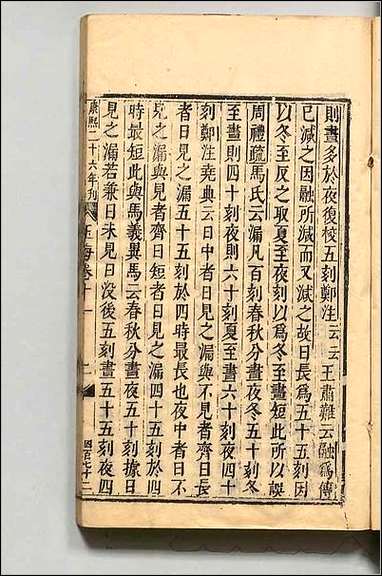 則晝多於夜復校五刻鄭注云云王肅難云融爲傳
已減之因融所減而又減之故日長爲五十五刻因
以冬至反之取夏至夜刻以爲冬至晝短此所以誤
周禮疏馬氏云漏凡百刻春秋分晝夜各五十刻冬
至晝則四十刻夜則六十刻夏至晝六十刻夜四十
刻鄭注堯典云日中者日見之漏與不見者齊日長
者日見之漏五十五刻於四時最長也夜中者日不
見之漏與見者齊日短者日見之漏四十五刻於四
時最短此與馬義異馬云春秋分晝夜五十刻據日
見之漏若兼日未見日没後五刻晝五十五刻夜四
康熙二十六年刋
玉海卷十一
二